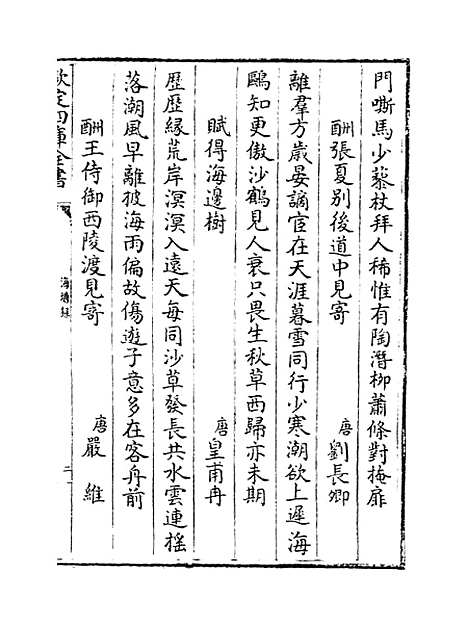 門嘶馬少藜杖拜人稀惟有陶潛柳蕭條對掩扉
酬張夏別後道中見寄 唐 劉長卿
離羣方歲晏謫宦在天涯暮雪同行少寒潮欲上遲海
鷗知更傲沙鶴見人衰只畏生秋草西歸亦未期
賦得海邊樹 唐 皇甫冉
歷歷緣荒岸溟溟入遠天每同沙草發長共水雲連搖
落潮風早離披海雨偏故傷遊子意多在客舟前
酬王侍御西陵渡見寄 唐 嚴維
欽定四庫全書
海塘録
二